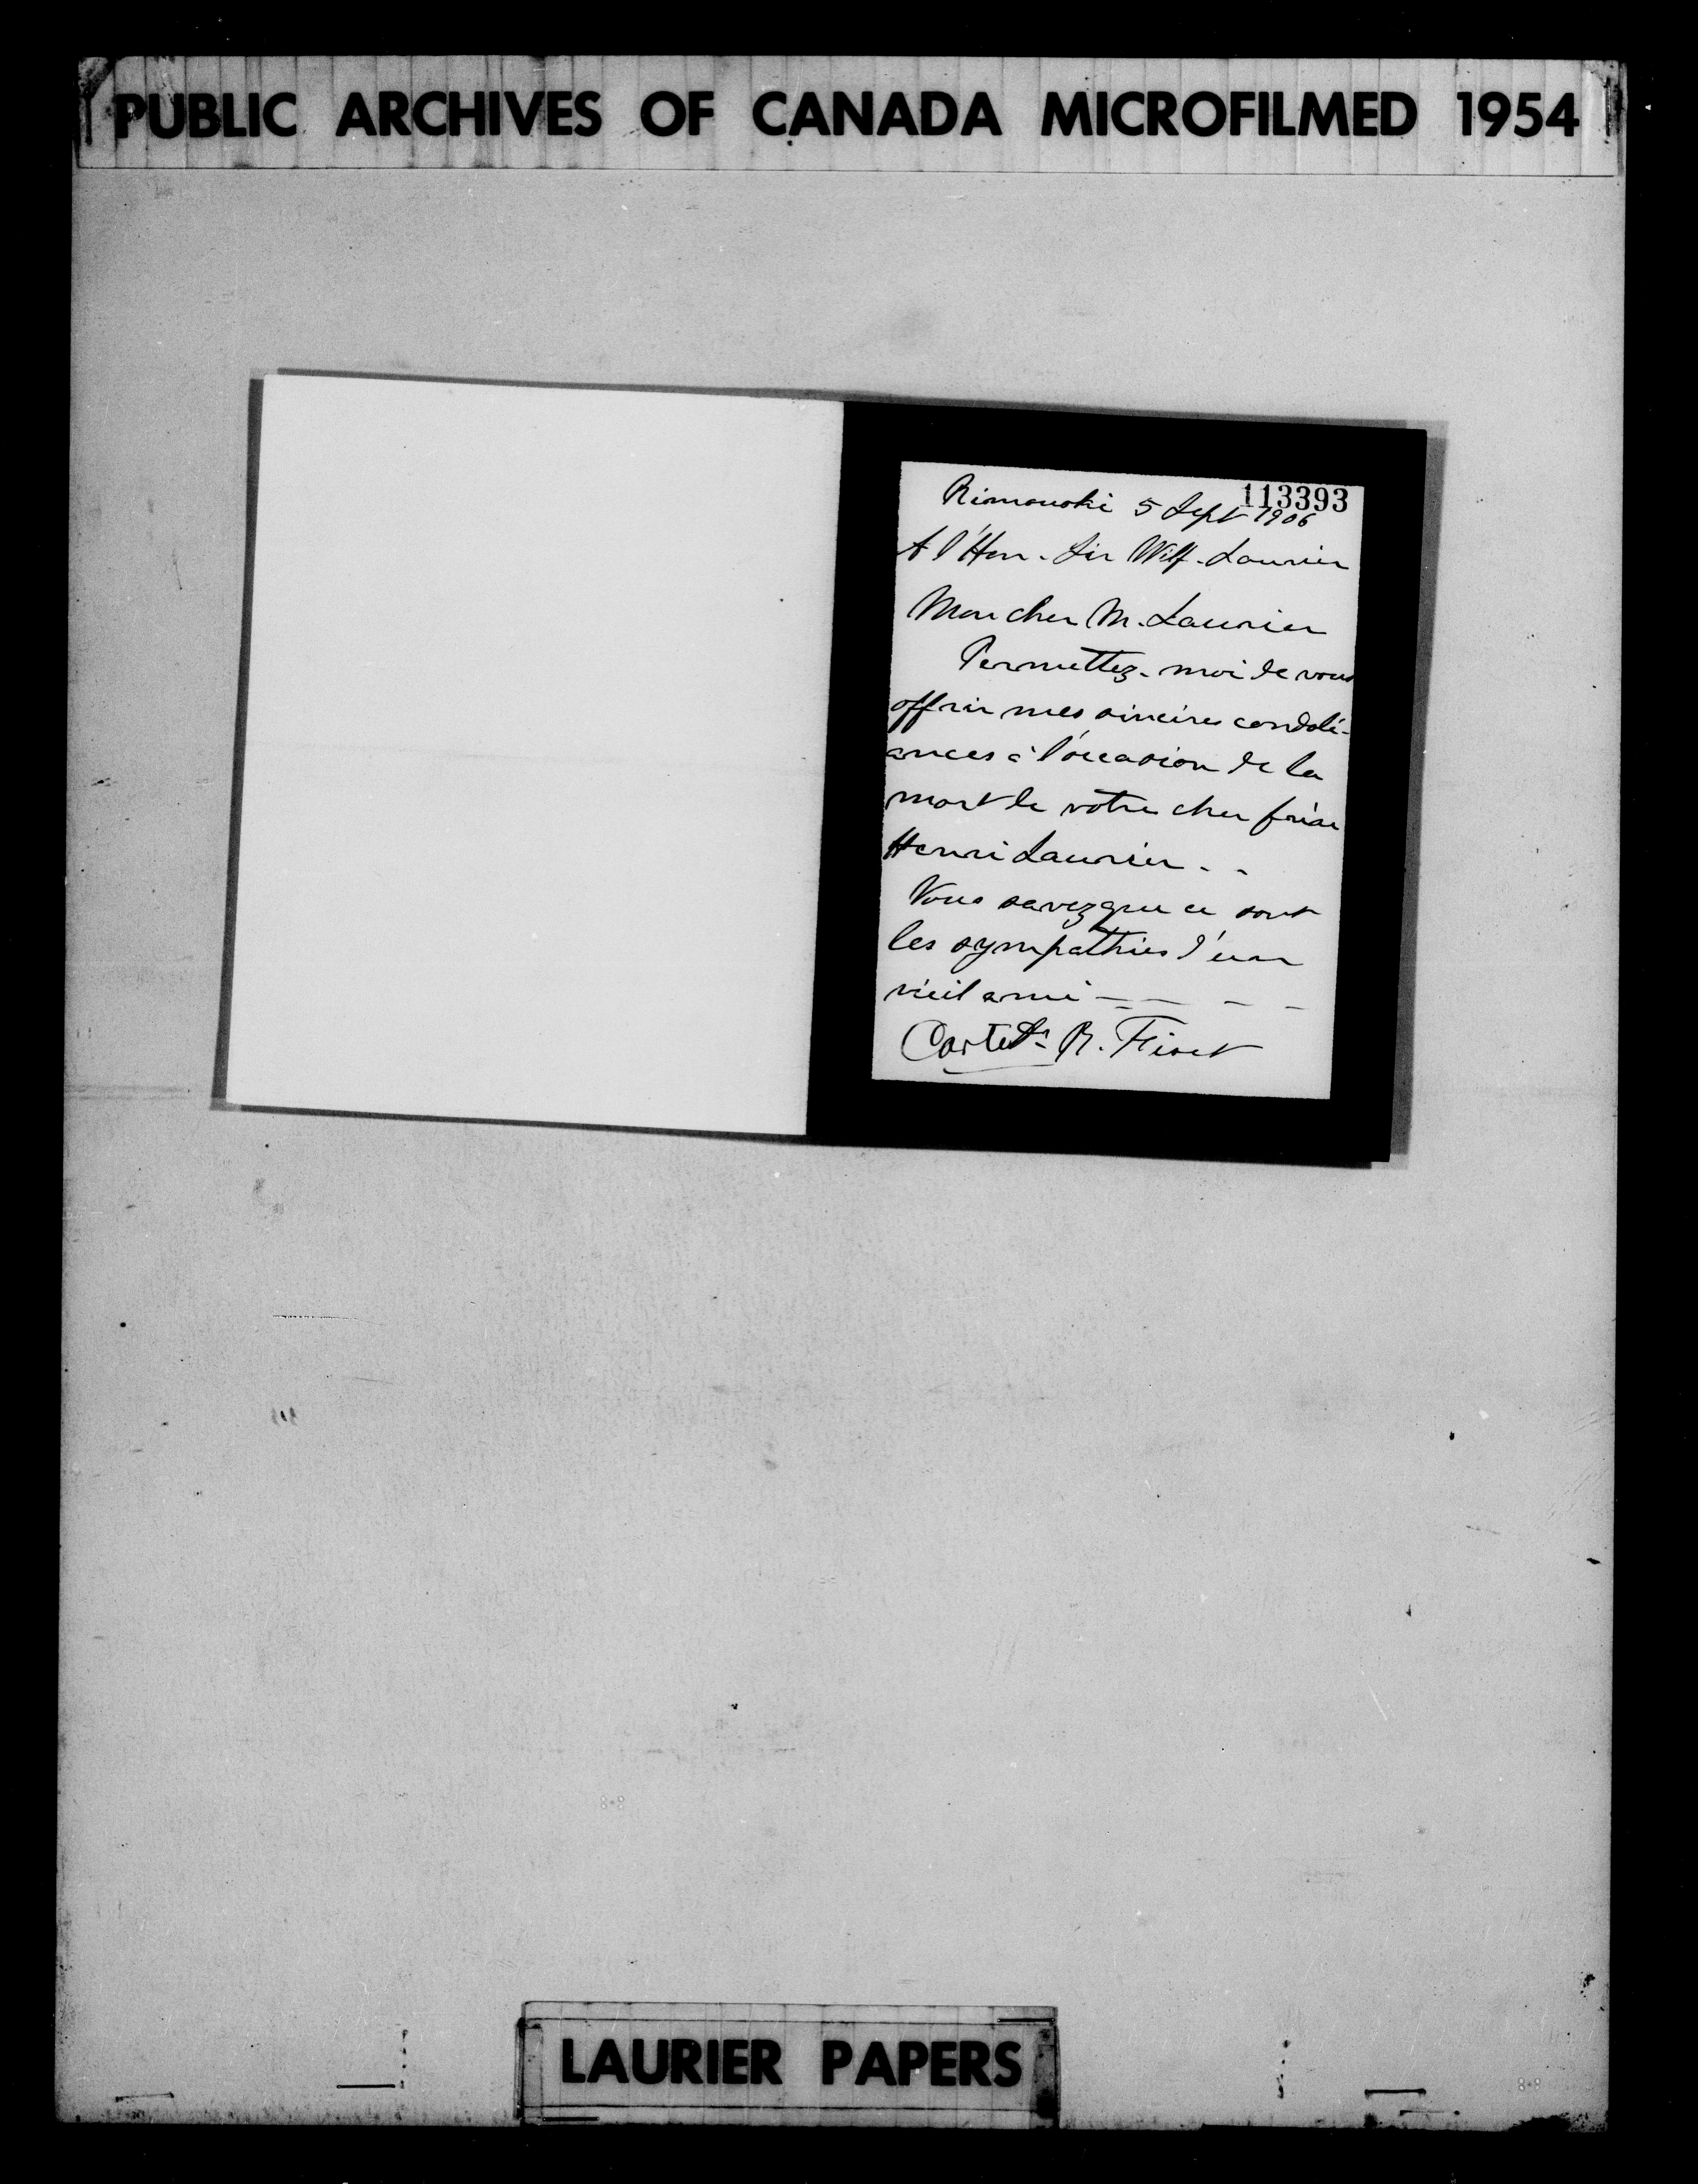 PUBLIC ARCHIVES OF CANADA MICROFILMED 1954
113393
Rimouski 5 Sept 1906
A l'Hon. Sir Wilf. Laurier
Mon cher M. Laurier
Permettez-moi de vous
offrir mes sincères condolé-
ances à l'occasion de la
mort de votre cher frère
Henri Laurier - -
Vous savez que ce sont
les sympathies d'un
vieil ami - - - -
R. Fiset
LAURIER PAPERS